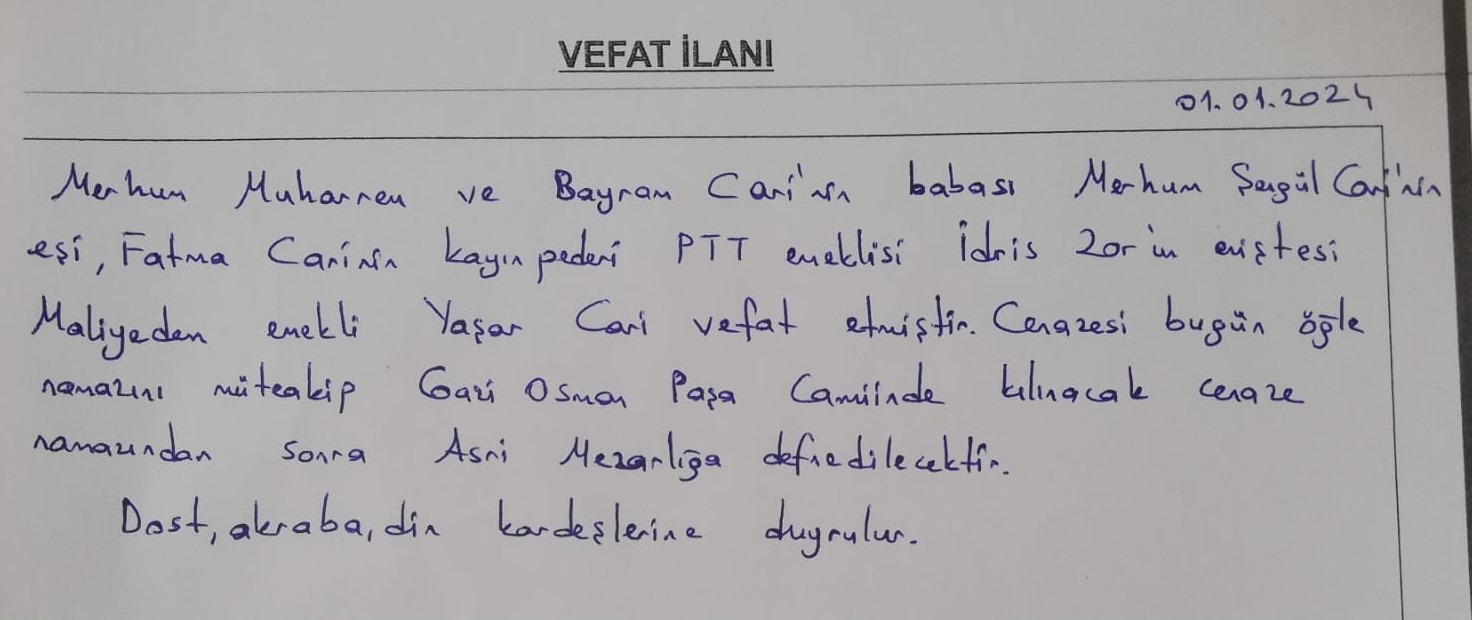 VEFAT İLANI
01.01.2024
Merhum Muharrem ve Bayram Cari'nin babası Merhum Songül Cari'nin
eşi, Fatma Cari'nin kayınpederi PTT emeklisi İdris Zor'un eniştesi
Maliyeden emekli Yaşar Cari vefat etmiştir. Cenazesi bugün öğle
namazını müteakip Gazi Osman Paşa Camiinde kılınacak cenaze
namazından sonra Asri Mezarlığa defnedilecektir.
Dost, akraba, din kardeşlerine duyrulur.